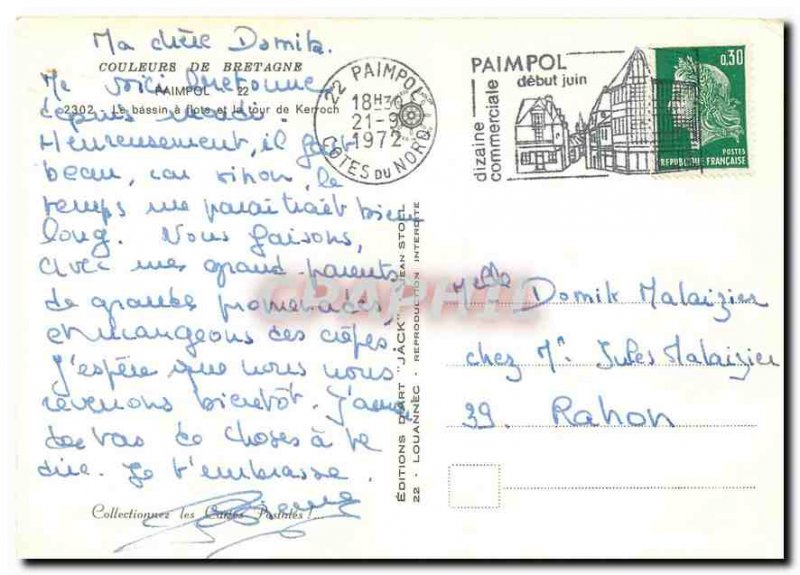 Ma chère Domik.
COULEURS DE BRETAGNE
Me voici bretonne
PAIMPOL 22
2302 - Le bassin à flots et la tour de Kerroch
depuis
Heureusement, il fait
beau, car sinon, le
temps me paraîtrait bien
long. Nous faisons,
avec mes grand-parents
de grandes promenades
et mangeons des crêpes.
J'espère que nous nous
reverrons bientôt. J'aurai
des tas de choses à te
dire. Je t'embrasse.
Collectionnez les Cartes Postales !...
22 PAIMPOL
18H30
21-9
1972
COTES DU NORD
PAIMPOL
début juin
dizaine
commerciale
0,30
POSTES
REPUBLIQUE FRANÇAISE
EDITIONS D'ART "JACK" JEAN STOEL
22 - LOUANNEC - REPRODUCTION INTERDITE
Melle Domik Malaizier
chez Mr Jules Malaizier
39. Rahon